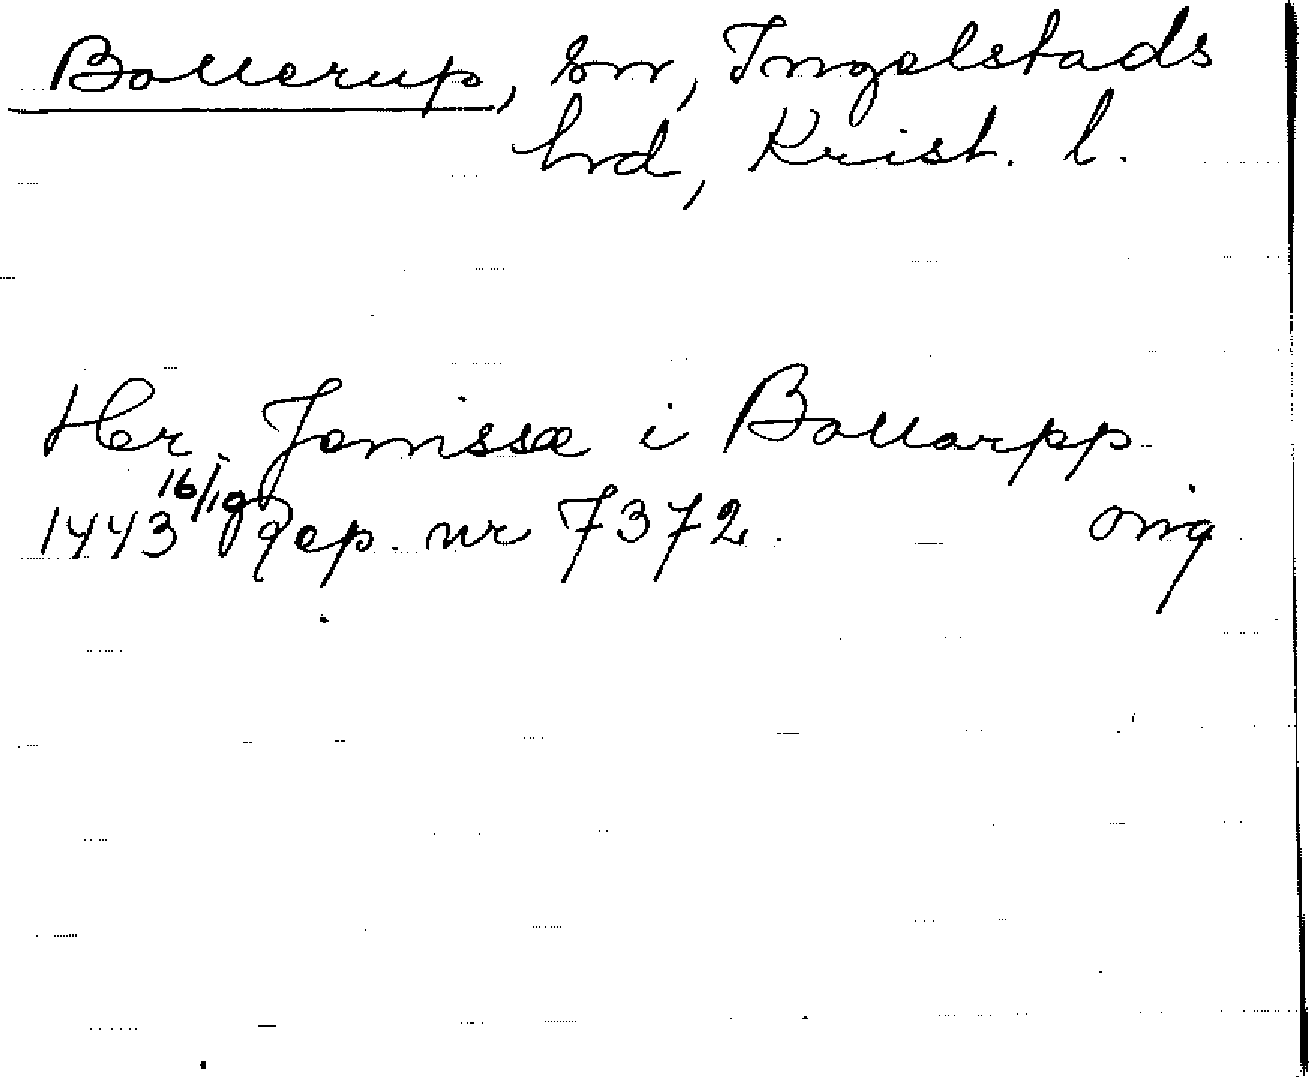 Bollerup, sn, Ingelstads
hrd, Krist. l.
Her Jønissæ i Bollarpp
1443 16/10 Rep. nr 7372. orig